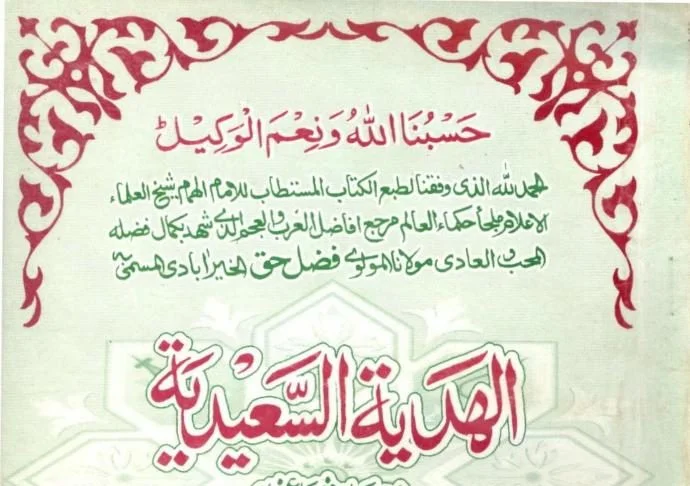 حَسْبُنَا اللّٰهُ وَنِعْمَ الْوَكِيْل
الحمد لله الذى وفقنا لطبع الكتاب المستطاب للامام الهمام شيخ العلماء
الاعلام ملجأ حكماء العالم مرجع افاضل العرب والعجم الذى شهد بكمال فضله
المحب والعادى مولانا المولوى فضل حق الخيرابادى المسمى به
الهدية السَّعيْدية